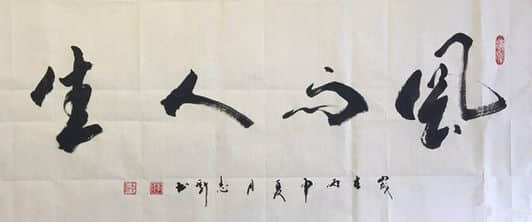 風雨人生
歲在丙申夏月志